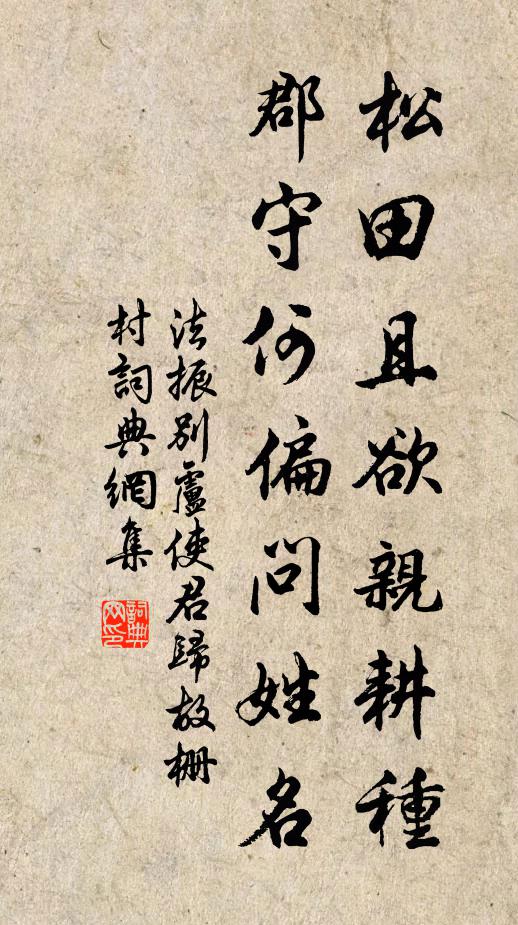 松田且欲親耕種
郡守何偏問姓名
法振別盧使君歸故柵
村詞典網集
詞典
网印